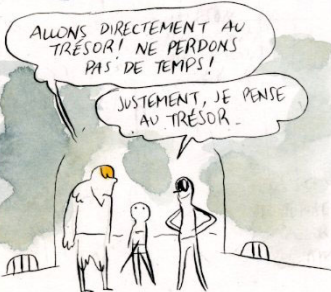 ALLONS DIRECTEMENT AU
TRÉSOR! NE PERDONS
PAS DE TEMPS!
JUSTEMENT, JE PENSE
AU TRÉSOR_